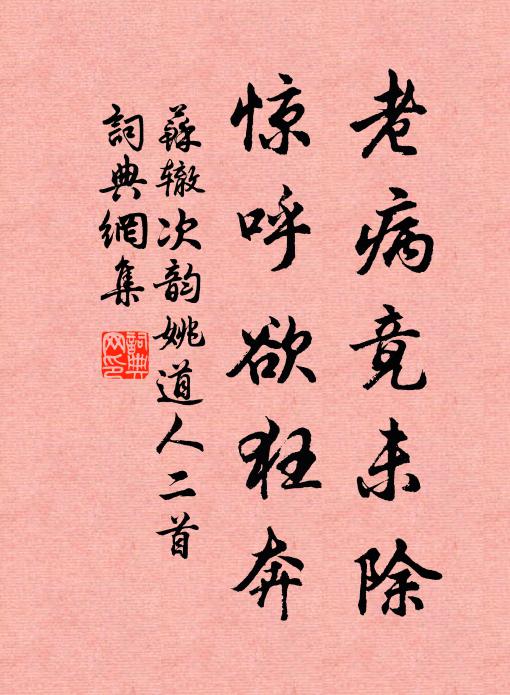 老病竟未除
惊呼欲狂奔
蘇辙次韵姚道人二首
詞典網集
詞典网印